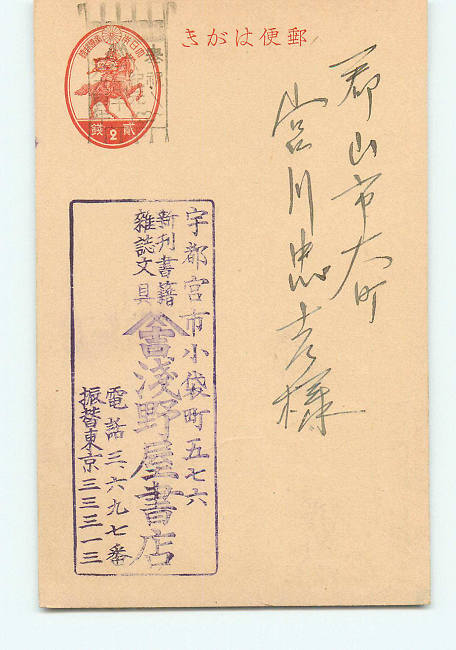 郵便はがき
大日本帝國郵便
貳 2 銭
郡山市大町
宮川忠吉様
宇都宮市小袋町五七六
新刊書籍
雑誌文具
浅野屋書店
電話三、六九七番
振替東京三三三一三